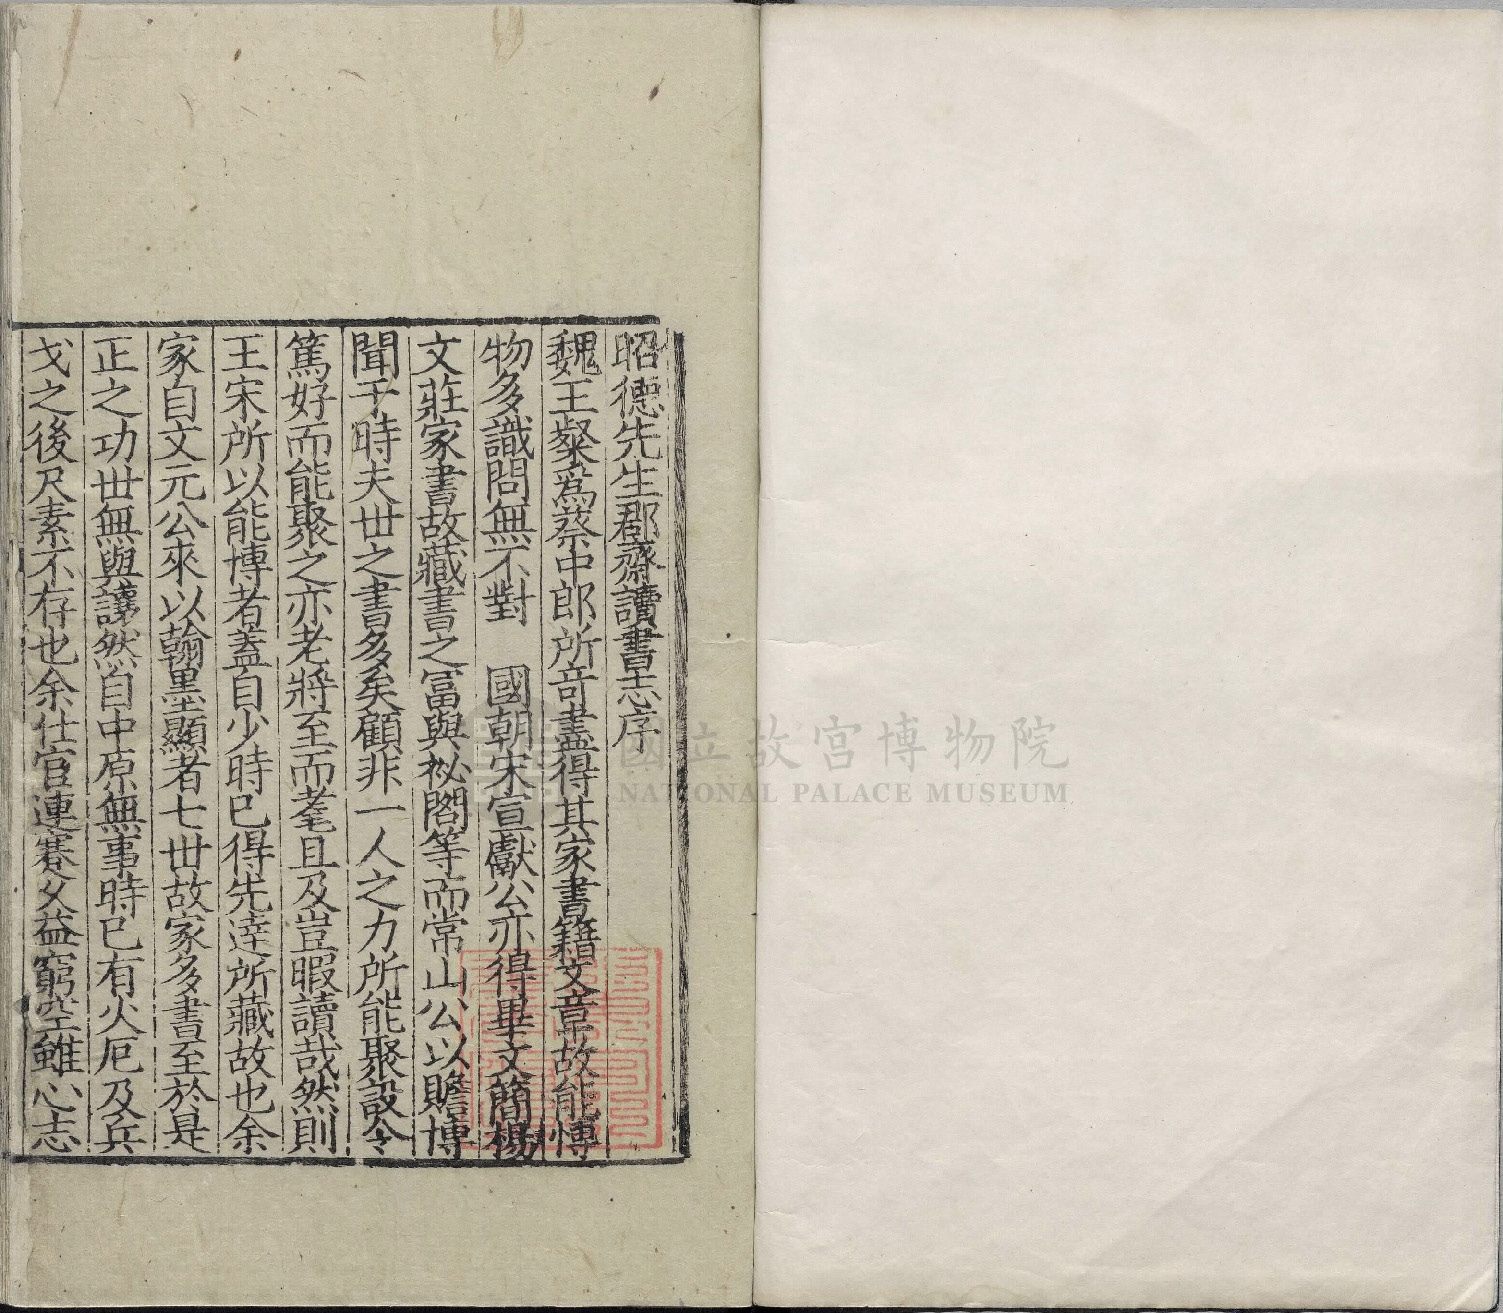 昭德先生郡齋讀書志序
魏王粲爲蔡中郎所竒盡得其家書籍文章故能博
物多識問無不對　國朝宋宣獻公亦得畢文簡楊
文莊家書故藏書之冨與祕閣等而常山公以贍博
聞于時夫丗之書多矣顧非一人之力所能聚設令
篤好而能聚之亦老將至而耄且及豈暇讀哉然則
王宋所以能博者蓋自少時已得先逹所藏故也余
家自文元公來以翰墨顯者七丗故家多書至於是
正之功丗無與讓然自中原無事時已有火厄及兵
戈之後尺素不存也余仕宦連蹇久益窮空雖心志
國立故宮博物院
NATIONAL PALACE MUSEUM